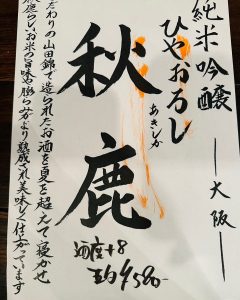 純米吟醸
―大阪―
ひやおろし
秋鹿
あきしか
酒度+8
こだわりの山田錦で造られたお酒を夏を超えて寝かせ
秋鹿らしいお米の旨味と膨らみがより熟成され美味しく仕上っています